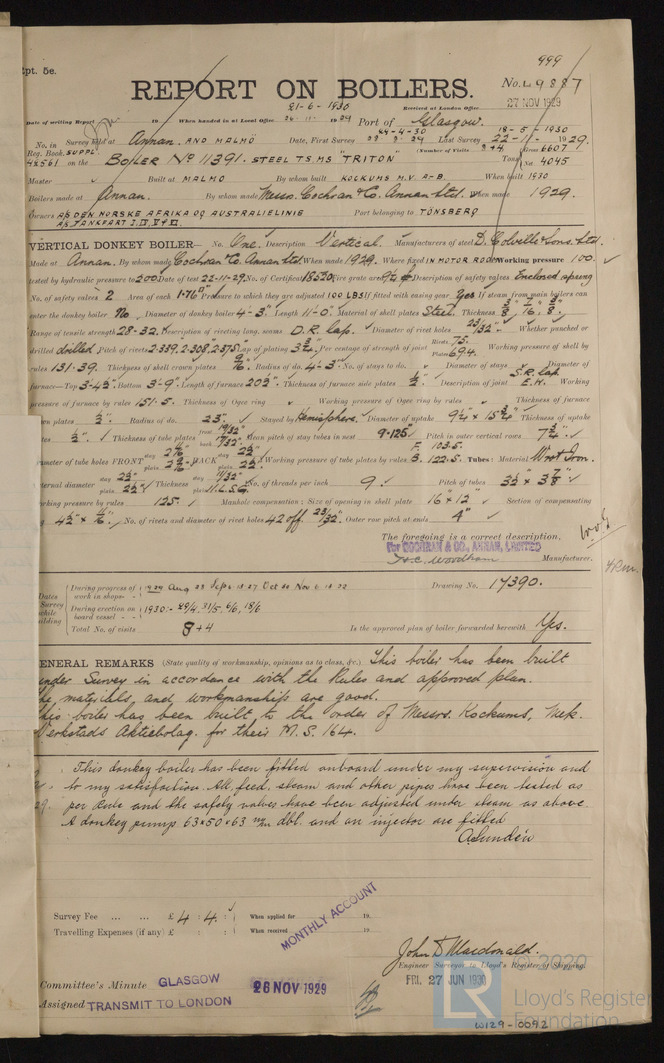 Rpt. 5e.
999
REPORT ON BOILERS.
No. 49887
27 NOV 1929
Received at London Office
21-6-1930
Date of writing Report 19 When handed in at Local Office 26-11-1929 Port of Glasgow.
No. in Reg. Book. SUPPL 42561 Survey held at Annan. AND MALMÖ Date, First Survey 28.8.29 24-4-30 Last Survey 22-11-1929. 18-5-1930
(Number of Visits 8+4)
on the BOILER No 11391. STEEL TSMS "TRITON" Tons Gross 6607 Net 4045
Master Built at MALMO By whom built KOCKUMS M.V. A-B. When built 1930
Boilers made at Annan. By whom made Messrs. Cochran & Co. Annan Ltd. When made 1929.
Owners A/S DEN NORSKE AFRIKA OG AUSTRALIELINIE Port belonging to TÖNSBERG
VERTICAL DONKEY BOILER— No. One. Description Vertical. Manufacturers of steel D. Colville & Sons. Ltd.
Made at Annan. By whom made Cochran & Co. Annan Ltd When made 1929. Where fixed IN MOTOR ROOM Working pressure 100.
tested by hydraulic pressure to 200 Date of test 22-11-29. No. of Certificate 18520 Fire grate area Description of safety valves Enclosed spring
No. of safety valves 2 Area of each 1.76" Pressure to which they are adjusted 100 LBS If fitted with easing gear Yes If steam from main boilers can
enter the donkey boiler No Diameter of donkey boiler 4-3" Length 11-0" Material of shell plates Steel. Thickness
Range of tensile strength 28-32. Description of riveting long. seams D.R. Lap. Diameter of rivet holes 23/32" Whether punched or
drilled drilled Pitch of rivets 2.339, 2.308, 2.375 Lap of plating Per centage of strength of joint Rivets 75. Plates 69.4. Working pressure of shell by
rules 131.39. Thickness of shell crown plates 9/16" Radius of do. 4-3" No. of stays to do. Diameter of stays Diameter of
furnace—Top 3-4½" Bottom 3-9" Length of furnace 20½" Thickness of furnace side plates ½" Description of joint S.R. Lap. E.H. Working
pressure of furnace by rules 151.5. Thickness of Ogee ring Working pressure of Ogee ring by rules Thickness of furnace
crown plates ½" Radius of do. 23" Stayed by Hemisphere. Diameter of uptake Thickness of uptake
plates ½" Thickness of tube plates front 19/32" back 17/32" Mean pitch of stay tubes in nest 9.125" Pitch in outer vertical rows
Diameter of tube holes FRONT stay plain BACK stay plain Working pressure of tube plates by rules F. 103.5. B. 122.5. Tubes: Material Wrot Iron.
External diameter stay 2½" plain 2½" Thickness stay 11/32" plain 11 L.S.G. No. of threads per inch 9 Pitch of tubes
Working pressure by rules 125. Manhole compensation: Size of opening in shell plate 16" × 12" Section of compensating
No. of rivets and diameter of rivet holes 42 off. 23/32" Outer row pitch at ends 4"
The foregoing is a correct description.
For COCHRAN & CO., ANNAN, LIMITED
Manufacturer.
Dates of Survey while building
During progress of work in shops - - 1929 Aug 28 Sept 12 27 Oct 30 Nov 6 18 22
During erection on board vessel - - 1930:- 24/4, 31/5, 6/6, 18/6
Total No. of visits 8+4
Drawing No. 17390.
Is the approved plan of boiler forwarded herewith Yes.
GENERAL REMARKS (State quality of workmanship, opinions as to class, &c.) This boiler has been built
under Survey in accordance with the Rules and approved plan.
The materials and workmanship are good.
This boiler has been built to the order of Messrs. Kockums, Mek.
Verkstads Aktiebolag. for their M.S. 164.
This donkey boiler has been fitted onboard under my supervision and
to my satisfaction. All feed, steam and other pipes have been tested as
per Rule and the safety valves have been adjusted under steam as above.
A donkey pump 63×50×63 m/m dbl. and an injector are fitted
Survey Fee ... ... £ 4 : 4 : When applied for 19
Travelling Expenses (if any) £ : : When received 19
MONTHLY ACCOUNT
John D Macdonald.
Engineer Surveyor to Lloyd's Register of Shipping.
Committee's Minute GLASGOW 26 NOV 1929
FRI. 27 JUN 1930
Assigned TRANSMIT TO LONDON
© 2020
LR
Lloyd's Register
Foundation
W129-0092